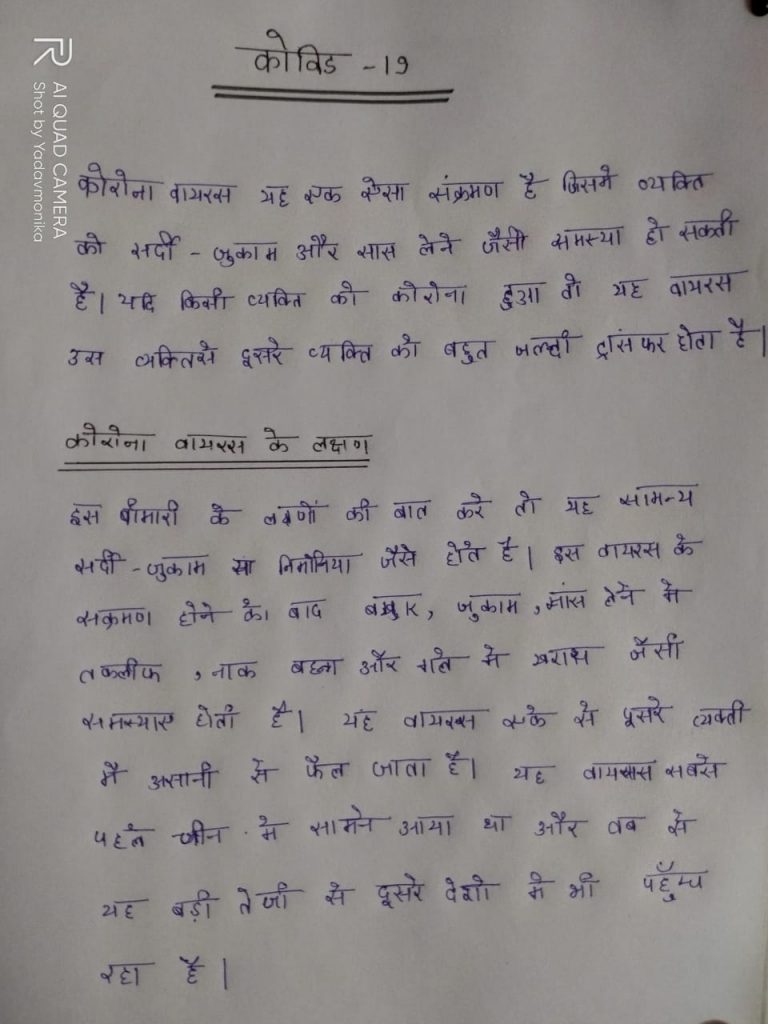 कोविड -19
कोरोना वायरस यह एक ऐसा संक्रमण है जिसमे व्यक्ति
को सर्दी - जुकाम और सास लेने जैसी समस्या हो सकती
है। यदि किसी व्यक्ति को कोरोना हुआ तो यह वायरस
उस व्यक्तिसे दूसरे व्यक्ति को बहुत जल्दी ट्रांसफर होता है।
कोरोना वायरस के लक्षण
इस बीमारी के लक्षणों की बात करे तो यह सामन्य
सर्दी - जुकाम या निमोनिया जैसे होते है। इस वायरस के
सक्रमण होने के बाद बुखार, जुकाम, सांस लेने मे
तकलीफ, नाक बहना और गले मे खराश जैसी
समस्याए होती है। यह वायरस एक से दूसरे व्यक्ती
मै असानी से फैल जाता है। यह वायरस सबसे
पहले चीन मे सामने आया था और तब से
यह बड़ी तेजी से दूसरे देशो मे भी पहुँच
रहा है।
AI QUAD CAMERA
Shot by Yadavmonika